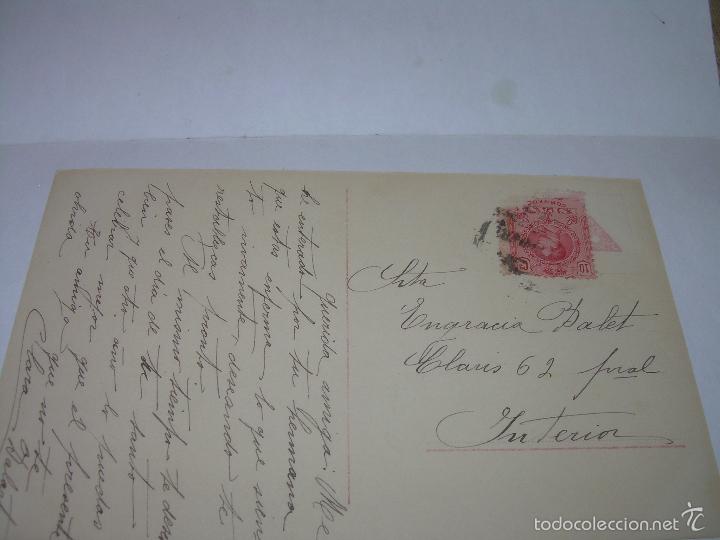 Querida amiga: Me
he enterado por tu hermana
que estas enferma, lo que sien
to vivamente, deseando te
restablezcas pronto.
Al mismo tiempo te deseo
pases el dia de tu santo
bien y que otro año lo puedas
celebrar mejor que el presente
tu amiga que no te
olvida
Clara
Srta
Engracia Balet
Claris 62 pral
Interior
10
© todocoleccion.net